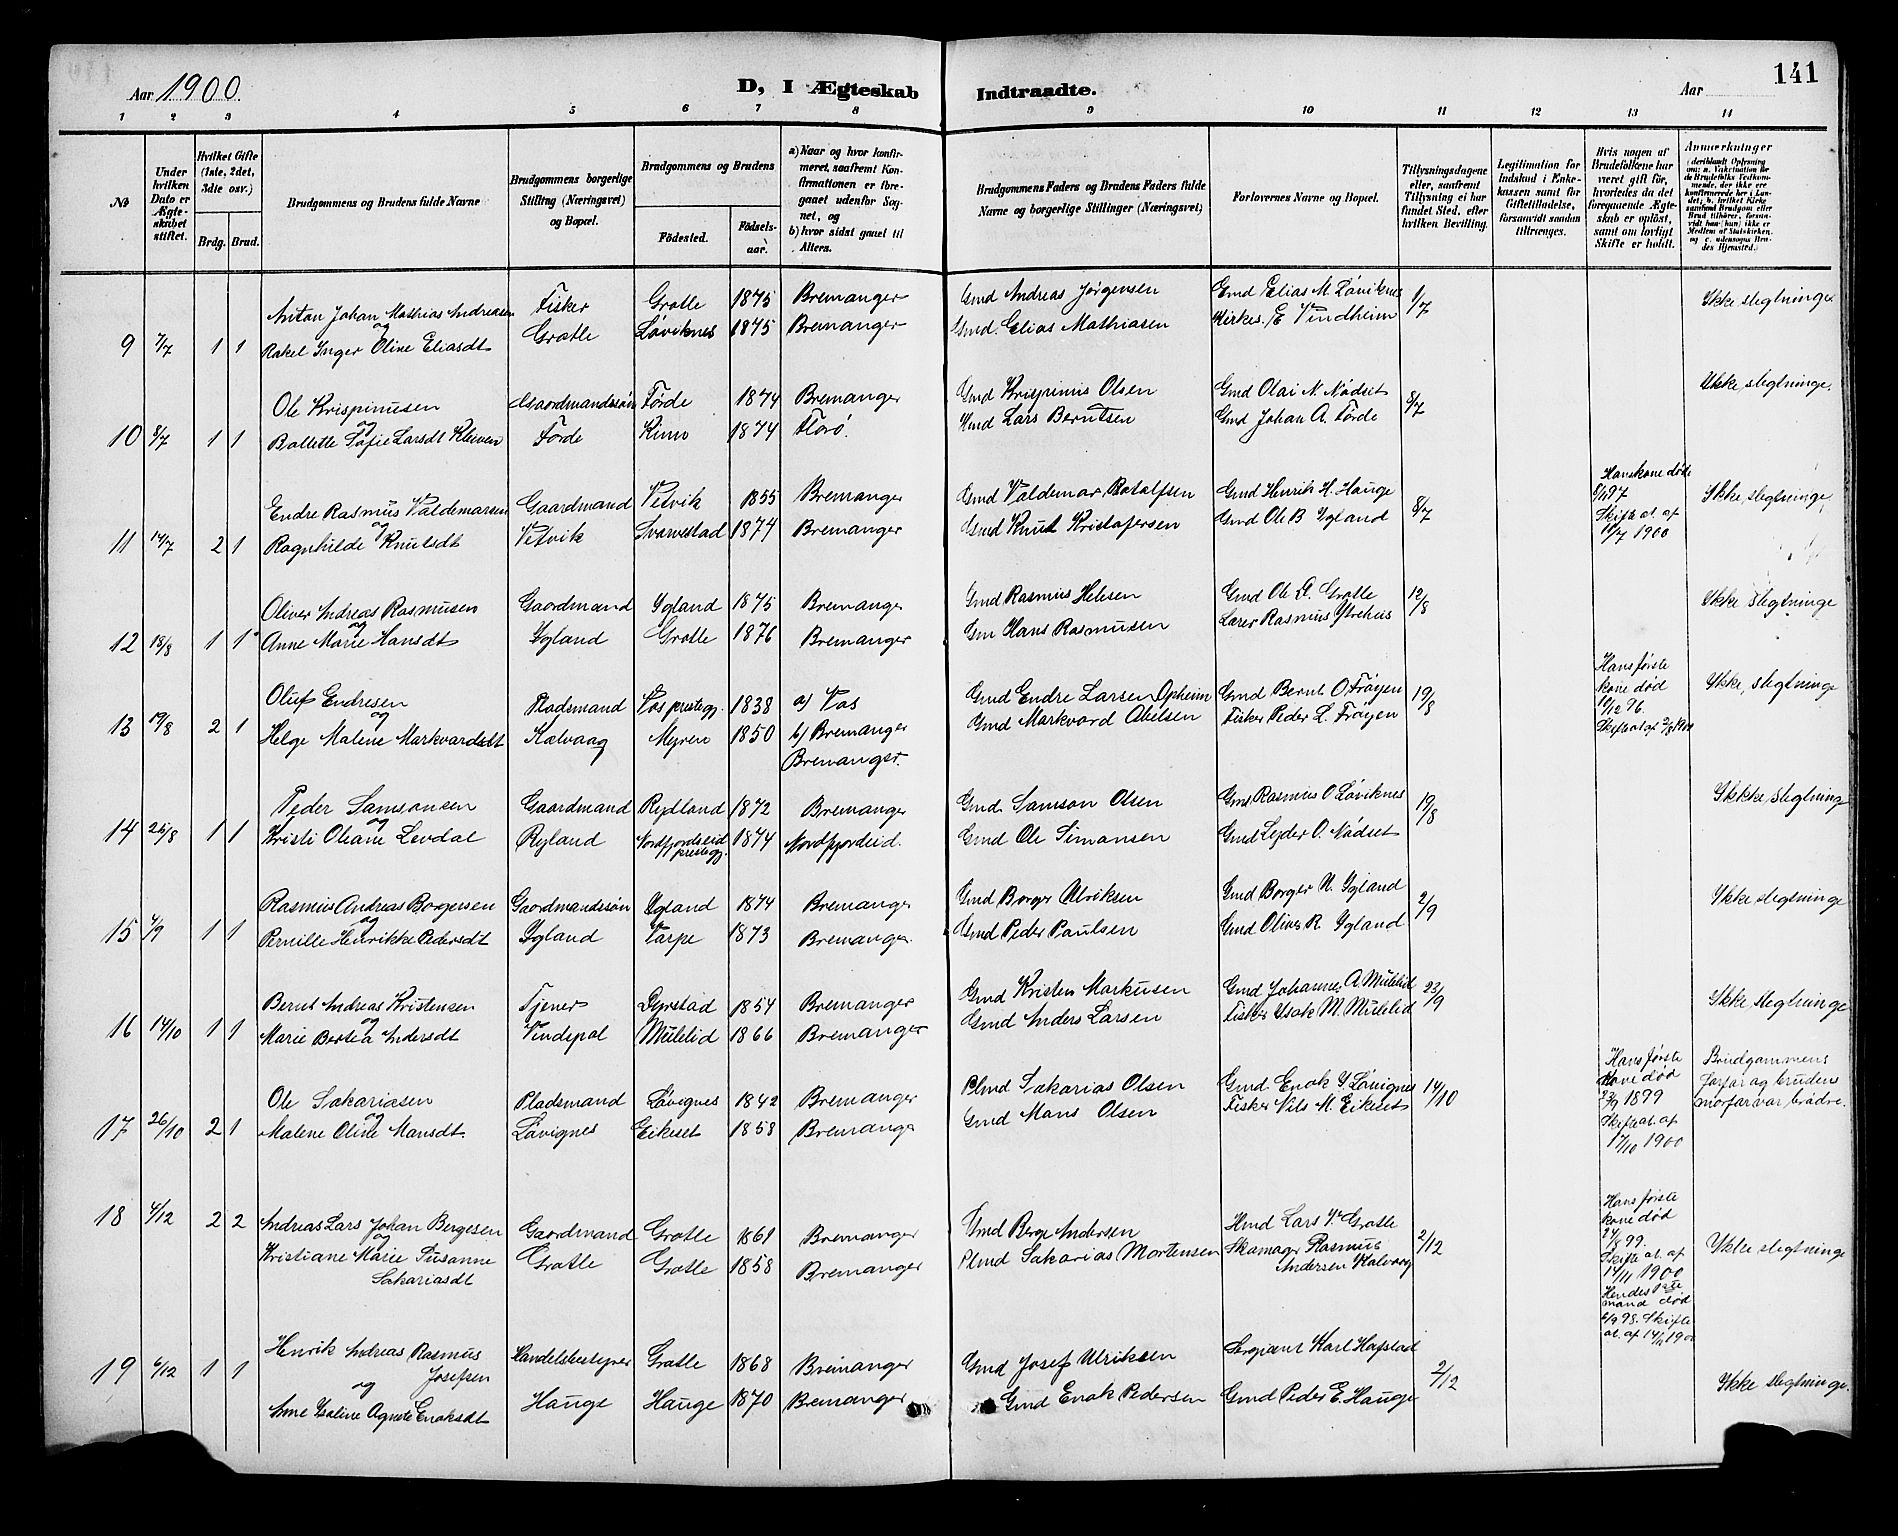 Aar 1900.
D, I Ægteskab Indtraadte.
Aar
141
1 2 3 4 5 6 7 8 9 10 11 12 13 14
No
Under hvilken Dato er Ægteskabet stiftet.
Hvilket Gifte (1ste, 2det, 3die osv.)
Brdg. Brud.
Brudgommens og Brudens fulde Navne
Brudgommens borgerlige Stilling (Næringsvei) og Bopæl.
Brudgommens og Brudens
Födested.
Födselsaar.
a) Naar og hvor konfirmeret, saafremt Konfirmationen er foregaaet udenfor Sognet, og
b) hvor sidst gaaet til Alters.
Brudgommens Faders og Brudens Faders fulde Navne og borgerlige Stillinger (Næringsvei)
Forlovernes Navne og Bopæl.
Tillysningsdagene eller, saafremt Tillysning ei har fundet Sted, efter hvilken Bevilling.
Legitimation for Indskud i Enkekassen samt for Giftetilladelse, forsaavidt saadan tiltrænges.
Hvis nogen af Brudefolkene har været gift för, hvorledes da det foregaaende Ægteskab er oplöst, samt om lovligt Skifte er holdt.
Anmærkninger (deriblandt Oplysning om: a. Vakcination for de Brudefolks Vedkommende, der ikke ere konfirmerede her i Landet; b. hvilket Kirkesamfund Brudgom eller Brud tilhører, forsaavidt han (hun) ikke er Medlem af Statskirken, og c. udensogns Brudes Hjemsted.)
Anton Johan Mathias Andreasen Fisker Grotle 1875 Bremanger Gmd Andreas Jørgensen Gmd Elias M. Løviknes 1/7 Ikke slegtninge
og
9 7/7 1 1 Rakel Inger Oline Eliasdt Grotle Løviknes 1875 Bremanger Gmd. Elias Mathiasen Kirkes. E Vindheim
Ole Krispinusen Gaardmandssøn Førde 1874 Bremanger Gmd Krispinus Olsen Gmd Olai N. Nødset 8/7 Ikke slegtninge.
og
10 8/7 1 1 Bollette Sofie Larsdt Kleiven Førde Kinn 1874 Florø. Hmd Lars Berntsen Gmd Johan A. Førde
Endre Rasmus Valdemarsen Gaardmand Vetvik 1855 Bremanger Gmd Valdemar Botolfsen Gmd Henrik H. Hauge 8/7 Hans kone død 8/11 97 Skifteat. af 10/7 1900 Ikke, slegtninge
og
11 14/7 2 1 Ragnhilde Knutsdt Vetvik Svarvestad 1874 Bremanger Gmd Knut Kristofersen Gmd Ole B Igland
Oliver Andreas Rasmusen Gaardmand Igland 1875 Bremanger Gmd Rasmus Helesen Gmd Ole A. Grotle 12/8 Ikke slegtninge
og
12 18/8 1 1 Anne Marie Hansdt Igland Grotle 1876 Bremanger Gm Hans Rasmusen Lærer Rasmus Ytrehus
Oluf Endresen Pladsmand Vos prestegj. 1838 a) Vos Gmd Endre Larsen Opheim Gmd Bernt O. Frøyen 19/8 Hans første kone død 10/12 96 Skifteat af 2/8 1900 Ikke, slegtninge
og
13 19/8 2 1 Helge Malene Markvardsdt Kalvaag Myren 1850 b) Bremanger Gmd Markvard Abelsen Fisker Peder L. Frøyen
Bremanger.
Peder Samsonsen Gaardmand Rylland 1872 Bremanger Gmd. Samson Olsen Gmd Rasmus O Løviknes 19/8 Ikkke slegtninge
og
14 26/8 1 1 Kristi Oliane Levdal Ryland Nordfjordeid prestegj. 1874 Nordfjordeid. Gmd Ole Simonsen Gmd Lejder O. Nødset
Rasmus Andreas Borgersen Gaardmandssøn Igland 1874 Bremanger Gmd Borger Ulriksen Gmd Borger U. Igland 2/9 Ikke slegtninge
og
15 4/9 1 1 Pernille Henrikke Pedersdt Igland Varpe 1873 Bremanger. Gmd Peder Paulsen Gmd Oliver R. Igland
Bernt Andreas Kristensen Tjener Dyrstad 1854 Bremanger Gmd Kristen Markusen Gmd Johannes A. Mulelid 23/9 Ikke slegtninge
og
16 14/10 1 1 Marie Bertea Andersdt Vindspol Mulelid 1866 Bremanger Gmd Anders Larsen Fisker Isak M. Mulelid
Ole Sakariasen Pladsmand Løvignes 1842 Bremanger Plmd Sakarias Olsen Gmd. Enok I. Løvignes 14/10 Hans første kone død 23/9 1899 Skifteat. af 17/10 1900 Brudgommens farfar og brudens morfar var brødre.
og
17 26/10 2 1 Malene Oline Mansdt. Løvignes Eikeset 1858 Bremanger Gmd Mons Olsen Fisker Nils M. Eikeset
18 4/12 2 2 Andreas Lars Johan Bergesen Gaardmand Grotle 1861 Bremanger Gmd Berge Andersen Hmd Lars Grotle 2/12 Hans første kone død 24/8 99. Skifteat. af 14/11 1900 Hendes 1ste mand død 6/9 98. Skifteat. af 14/11 1900 Ikke slegtninge
og
Kristiane Marie Susanne Grotle Grotle 1858 Bremanger Plmd Sakarias Mortensen Skomager Rasmus
Sakariasdt Andersen Kalvaag
Henrik Andreas Rasmus Handelsbestyrer Grotle 1868 Bremanger Gmd Josef Ulriksen Sergiant Karl Hafstad 2/12
19 6/12 1 1 Josefsen
og
Anne Isaline Agnete Enoksdt Hauge Hauge 1870 Bremanger Gmd Enok Pedersen Gmd Peder E. Hauge Ikke slegtninge.